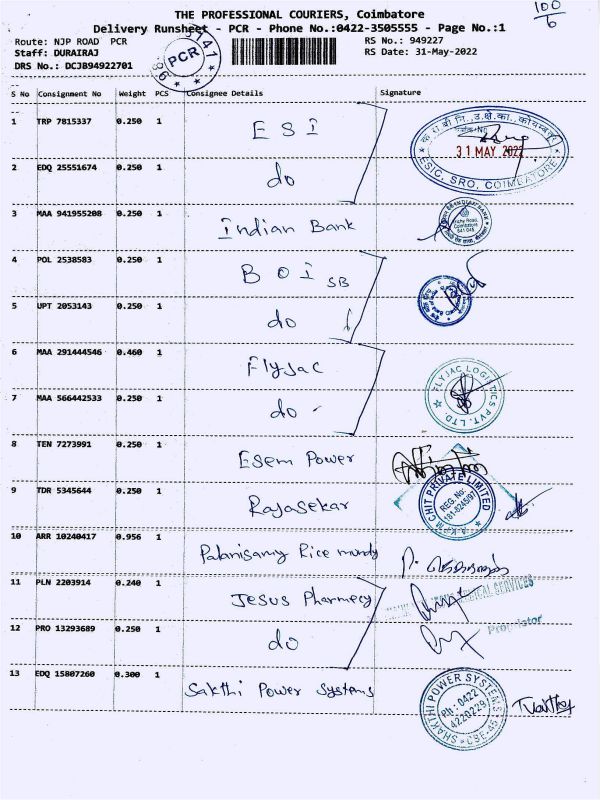 100
6
THE PROFESSIONAL COURIERS, Coimbatore
Delivery Runsheet - PCR - Phone No.:0422-3505555 - Page No.:1
Route: NJP ROAD PCR
RS No.: 949227
Staff: DURAIRAJ
RS Date: 31-May-2022
DRS No.: DCJB94922701
PCR
S No Consignment No Weight PCS Consignee Details Signature
1 TRP 7815337 0.250 1 ESI
31 MAY 2022
ESIC, SRO, COIMBATORE
2 EDQ 25551674 0.250 1 do
3 MAA 941955208 0.250 1 Indian Bank
4 POL 2538583 0.250 1 BOI SB
5 UPT 2053143 0.250 1 do
6 MAA 291444546 0.460 1 Flyjac
7 MAA 566442533 0.250 1 do
FLYJAC LOGISTICS PVT. LTD.
8 TEN 7273991 0.250 1 Esem Power
9 TDR 5345644 0.250 1 Rajasekar
CHIT PRIVATE LIMITED
REG. No
10 ARR 10240417 0.956 1 Palanisamy Rice mundy
11 PLN 2203914 0.240 1 Jesus Pharmecy
MEDICAL SERVICES
12 PRO 13293689 0.250 1 do
Proprietor
13 EDQ 15807260 0.300 1 Sakthi Power Systems
SHAKTHI POWER SYSTEMS
PH : 0422
4220229